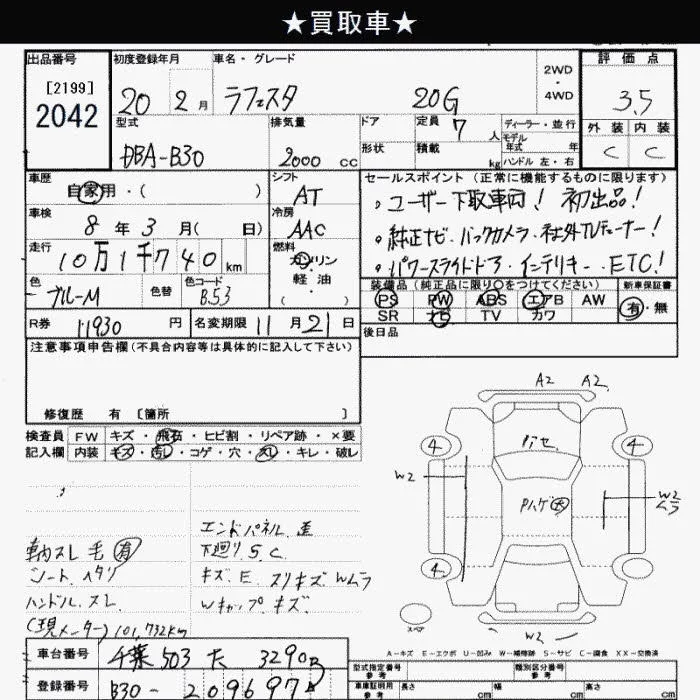 ★買取車★
出品番号 初度登録年月 車名・グレード 2WD・4WD 評価点
[2199]
2042
20 2月 ラフェスタ 20G 3.5
型式 排気量 ドア 定員 7人 ディーラー・並行 外装 内装
DBA-B30 2000cc 形状 積載 kg モデル年式 年 C C
ハンドル 左・右
車歴 シフト セールスポイント (正常に機能するものに限ります)
自家用・( ) AT 。ユーザー下取車両! 初出品!
車検 冷房
8年3月( 日) AAC 。純正ナビ・バックカメラ・社外TVチューナー!
走行 燃料
10万1千740km ガソリン・軽油・( ) 。パワースライドドア・インテリキー・ETC!
色 色替 色コード 装備品 (純正品に限り○をつけてください) 新車保証書
ブルーM B53 PS PW ABS エアB AW 有・無
SR ナビ TV カワ
R券 11930円 名変期限 11月21日 後日品
注意事項申告欄 (不具合内容等は具体的に記入して下さい)
修復歴 有 [箇所 ]
検査員 FW キズ・飛石・ヒビ割・リペア跡・×要
記入欄 内装 キズ・汚レ・コゲ・穴・スレ・キレ・破レ
A2 A2
4 4
W2 W2 ムラ
4
スペア W2
エンドパネル
車内スレ 毛 有 下廻り S.C
シート. ヘタリ キズ.E スリキズ Wムラ
ハンドル.スレ Wキャップ.キズ.
(現メーター) 101,732km
A-キズ E-エクボ U-凹み W-補修跡 S-サビ C-腐食 XX-交換済
車台番号 千葉 503 3290
型式指定番号 参考 類別区分番号 参考
登録番号 B30-209697
車庫証明用 参考 長さ cm 幅 cm 高さ cm